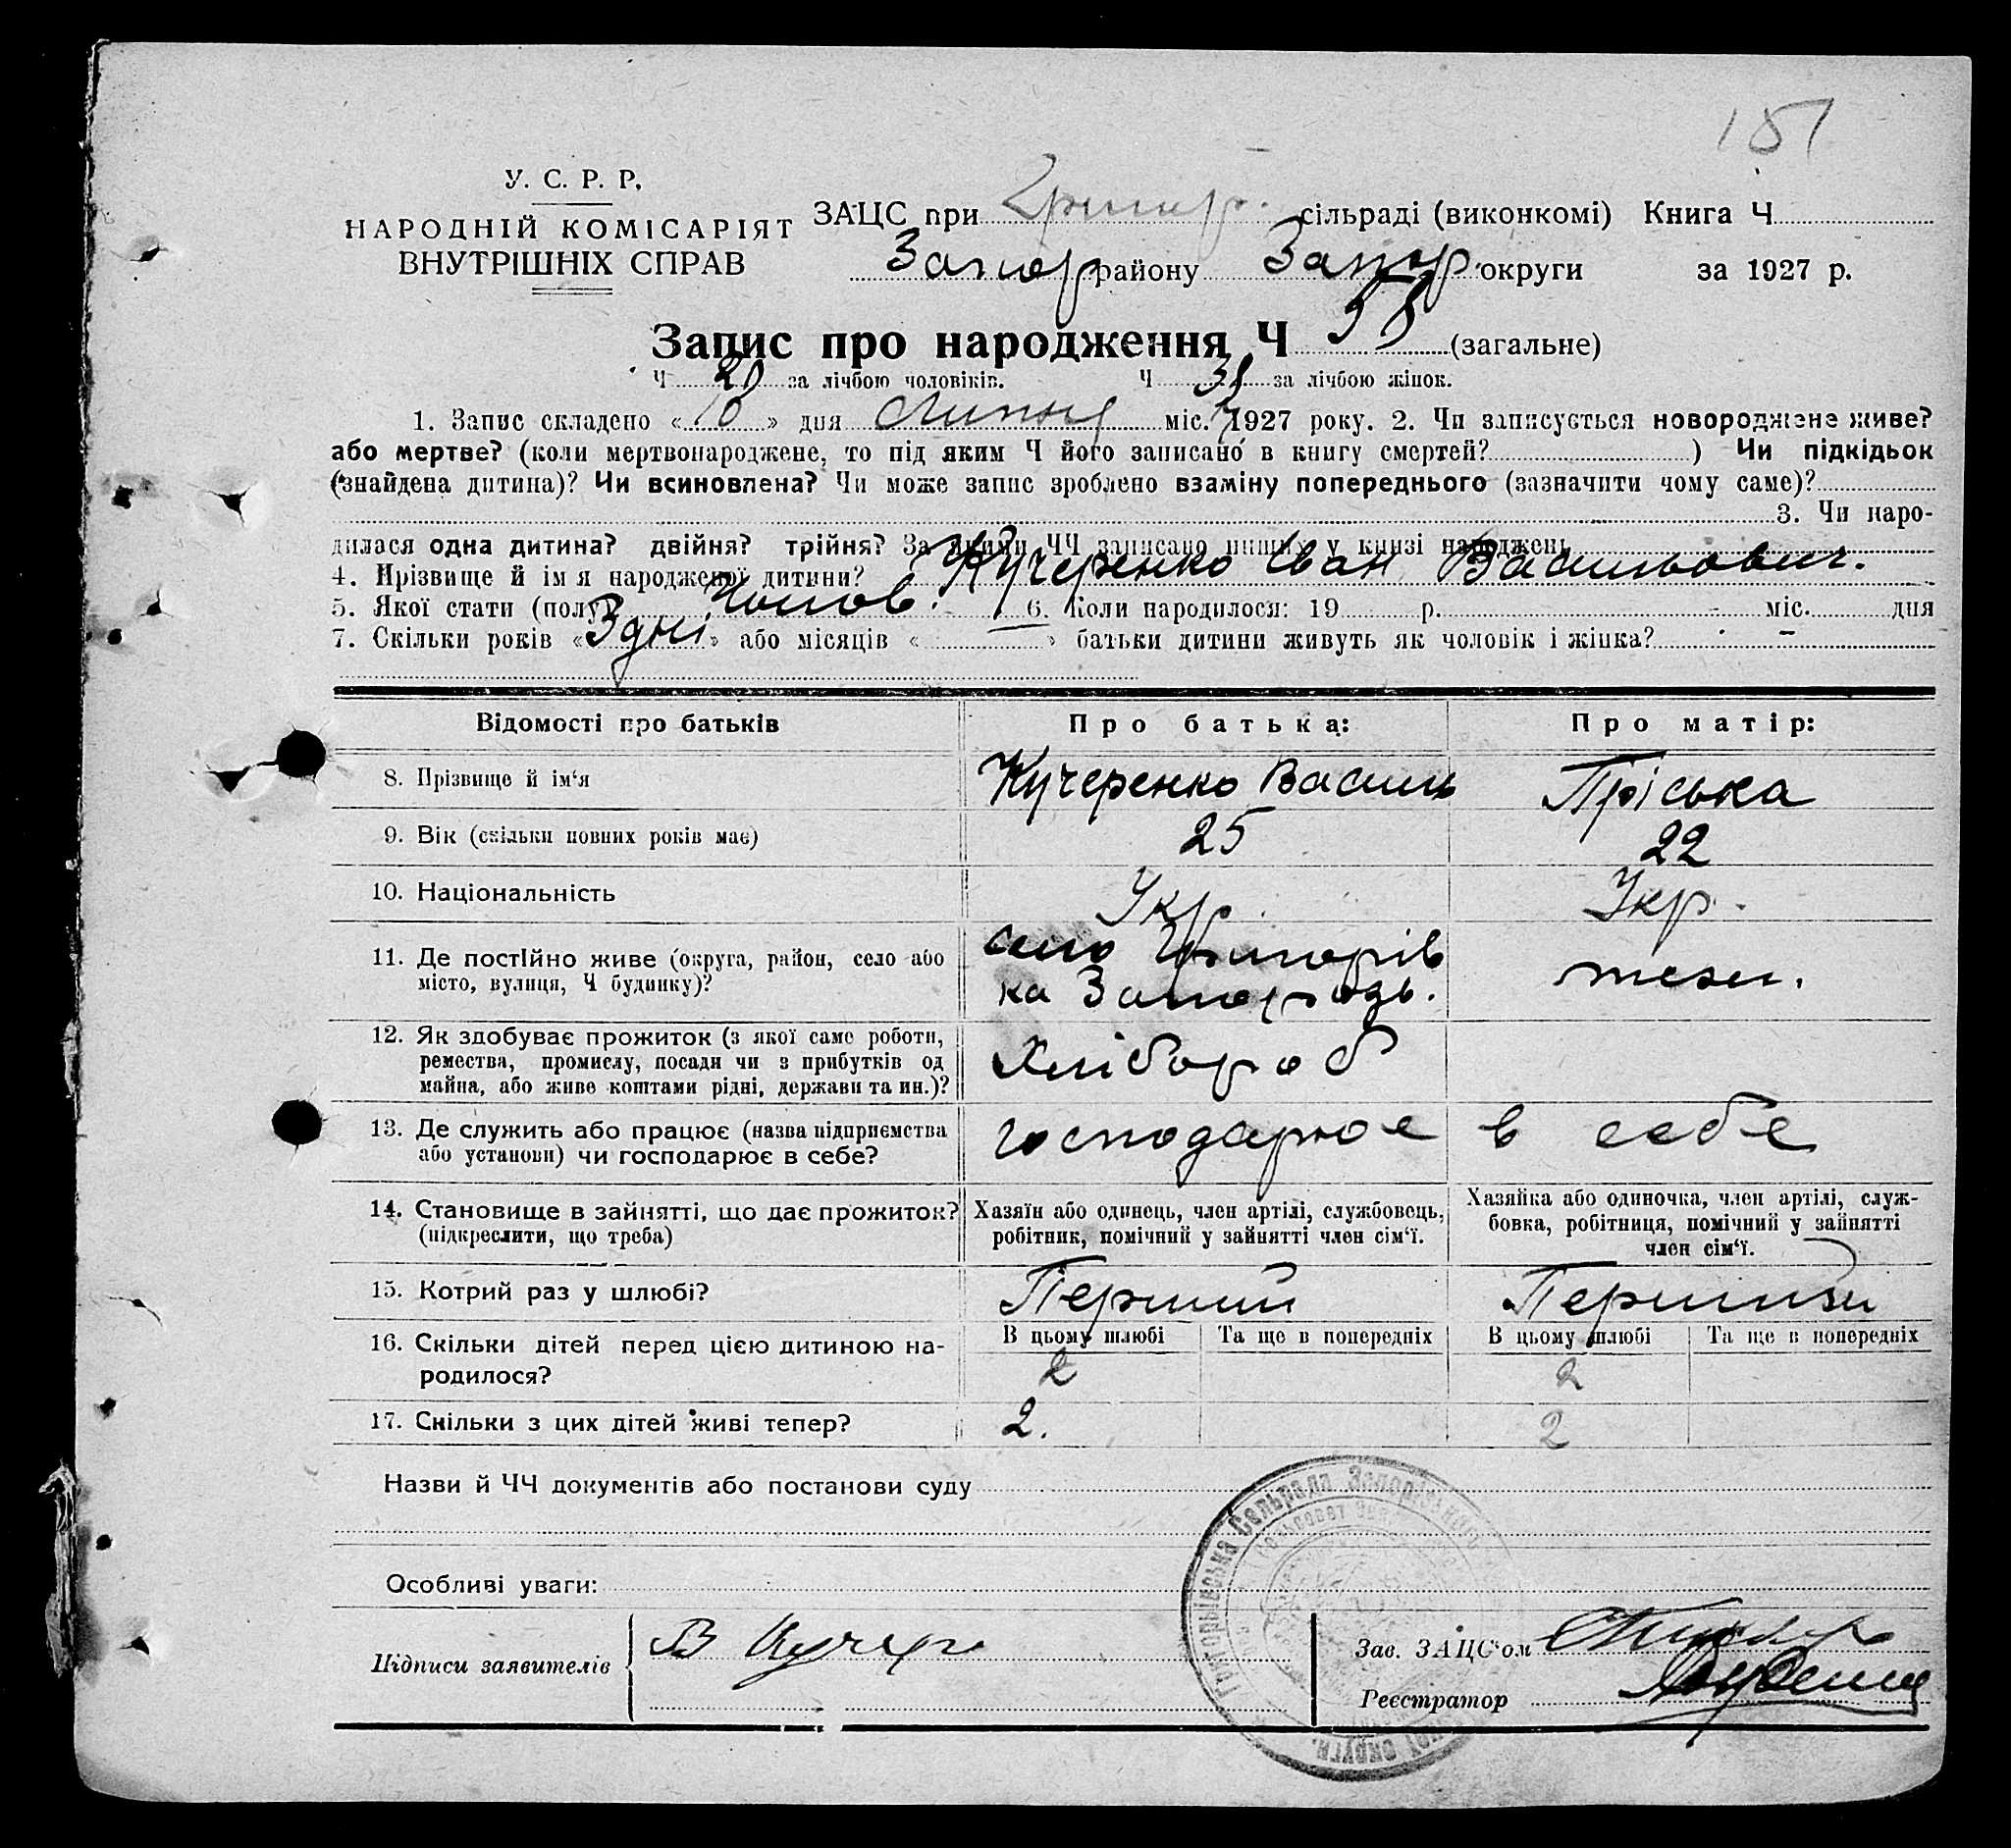 151
У. С. Р. Р.
НАРОДНІЙ КОМІСАРІЯТ
ВНУТРІШНІХ СПРАВ
ЗАЦС при Григор. сільраді (виконкомі) Книга Ч
Запор району Запор. округи за 1927 р.
Запис про народження Ч 58 (загальне)
Ч 20 за лічбою чоловіків. Ч 38 за лічбою жінок.
1. Запис складено «10» дня Липня міс. 1927 року. 2. Чи записується новороджене живе?
або мертве? (коли мертвонароджене, то під яким Ч його записано в книгу смертей? ) Чи підкідьок
(знайдена дитина)? Чи всиновлена? Чи може запис зроблено взаміну попереднього (зазначити чому саме)?
3. Чи наро-
дилася одна дитина? двійня? трійня? За якими ЧЧ записано инших у книзі народжень
4. Прізвище й ім'я народженої дитини? Кучеренко Іван Васильович.
5. Якої стати (полу) Чолов. 6. Коли народилося: 19 р. міс. дня
7. Скільки років «3 дні» або місяців « » батьки дитини живуть як чоловік і жінка? -
Відомості про батьків
Про батька:
Про матір:
8. Прізвище й ім'я
Кучеренко Василь
Пріська
9. Вік (скільки повних років має)
25
22
10. Національність
Укр.
Укр.
11. Де постійно живе (округа, район, село або
місто, вулиця, Ч будинку)?
село Григорів
ка Запорозь.
тези.
12. Як здобуває прожиток (з якої саме роботи,
ремества, промислу, посади чи з прибутків од
майна, або живе коштами рідні, держави та ин.)?
Хлібороб
13. Де служить або працює (назва підприємства
або установи) чи господарює в себе?
господарює в себе
14. Становище в зайнятті, що дає прожиток?
(підкреслити, що треба)
Хазяїн або одинець, член артілі, службовець,
робітник, помічний у зайнятті член сім'ї.
Хазяйка або одиночка, член артілі, служ-
бовка, робітниця, помічний у зайнятті
член сім'ї.
15. Котрий раз у шлюбі?
Перший
Перший
16. Скільки дітей перед цією дитиною на-
родилося?
В цьому шлюбі
Та ще в попередніх
В цьому шлюбі
Та ще в попередніх
2
2
17. Скільки з цих дітей живі тепер?
2.
2
Назви й ЧЧ документів або постанови суду
Особливі уваги:
Підписи заявителів
В Кучер
Зав. ЗАЦС'ом
Реєстратор
Григорьівська Сельрада Запорізького
округи.